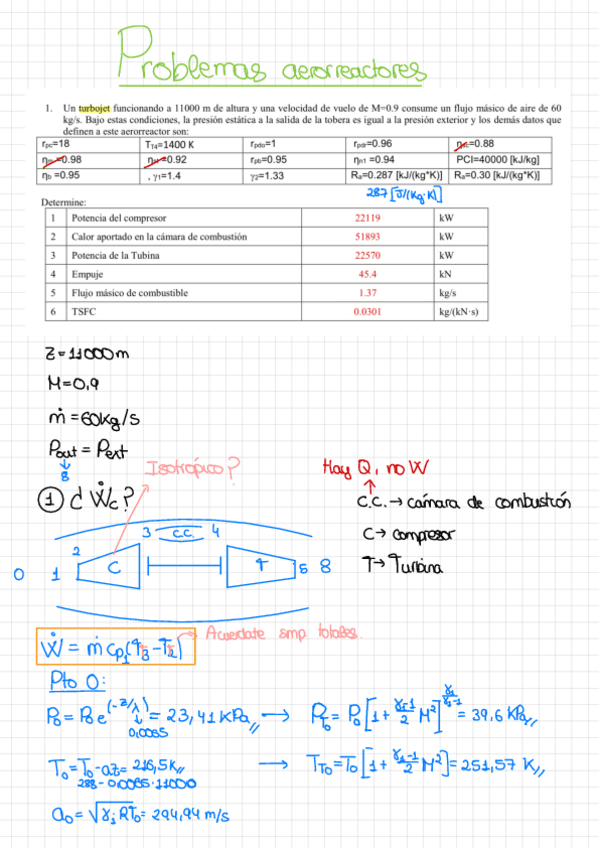 Problemas aerorreactores
1. Un turbojet funcionando a 11000 m de altura y una velocidad de vuelo de M=0.9 consume un flujo másico de aire de 60
kg/s. Bajo estas condiciones, la presión estática a la salida de la tobera es igual a la presión exterior y los demás datos que
definen a este aerorreactor son:
rpc=18 TT4=1400 K rpdo=1 rpar=0.96 =0.88
=0.98 =0.92 rpb=0.95 ηn1 =0.94 PCI=40000 [kJ/kg]
ηb =0.95 , γ1=1.4 γ2=1.33 Ra=0.287 [kJ/(kg*K)] Ra=0.30 [kJ/(kg*K)]
287 [J/(Kg·K)]
Determine:
1 Potencia del compresor 22119 kW
2 Calor aportado en la cámara de combustión 51893 kW
3 Potencia de la Tubina 22570 kW
4 Empuje 45.4 kN
5 Flujo másico de combustible 1.37 kg/s
6 TSFC 0.0301 kg/(kN·s)
Z=11000m
M=0,9
ṁ=60kg/s
Pout = Pext
8
Isotrópico?
Hay Q, no W
① ¿Ẇc?
C.C. → cámara de combustión
C → compresor
T → Turbina
0 1 2 C 3 C.C. 4 T 5 8
Ẇ = ṁ cp1 (T3 - T2)
Acuérdate smp totales.
Pto 0:
P0 = P0 e^(-z/λ) = 23,41 KPa → PT0 = P0 [1 + (γ1-1)/2 M²]^(γ1/(γ1-1)) = 39,6 KPa
0,0065
T0 = T0 - αz = 216,5K → TT0 = T0 [1 + (γ1-1)/2 M²] = 251,57 K
288 - 0,0065 · 11000
a0 = √γ1 R T0 = 294,94 m/s